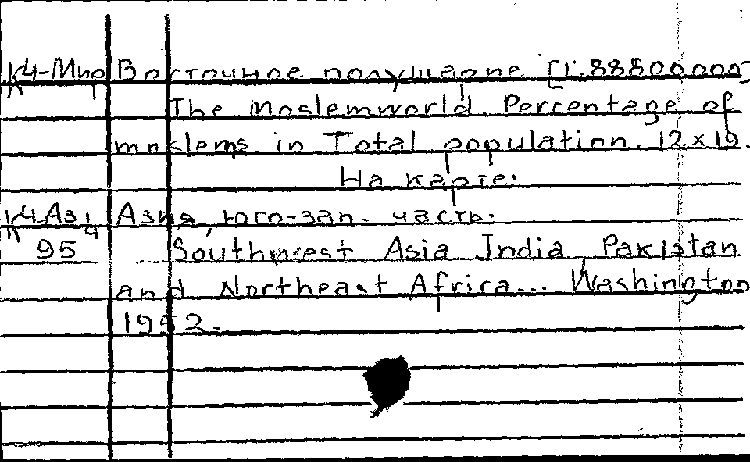 К4-Мир Восточное полушарие [1:88800000]
The Moslemworld. Percentage of
moslems in Total population. 12x19.
На карте:
К4.Аз4 Азия, юго-зап. часть.
95 Southwest Asia India, Pakistan
and Northeast Africa... Washington
1952.